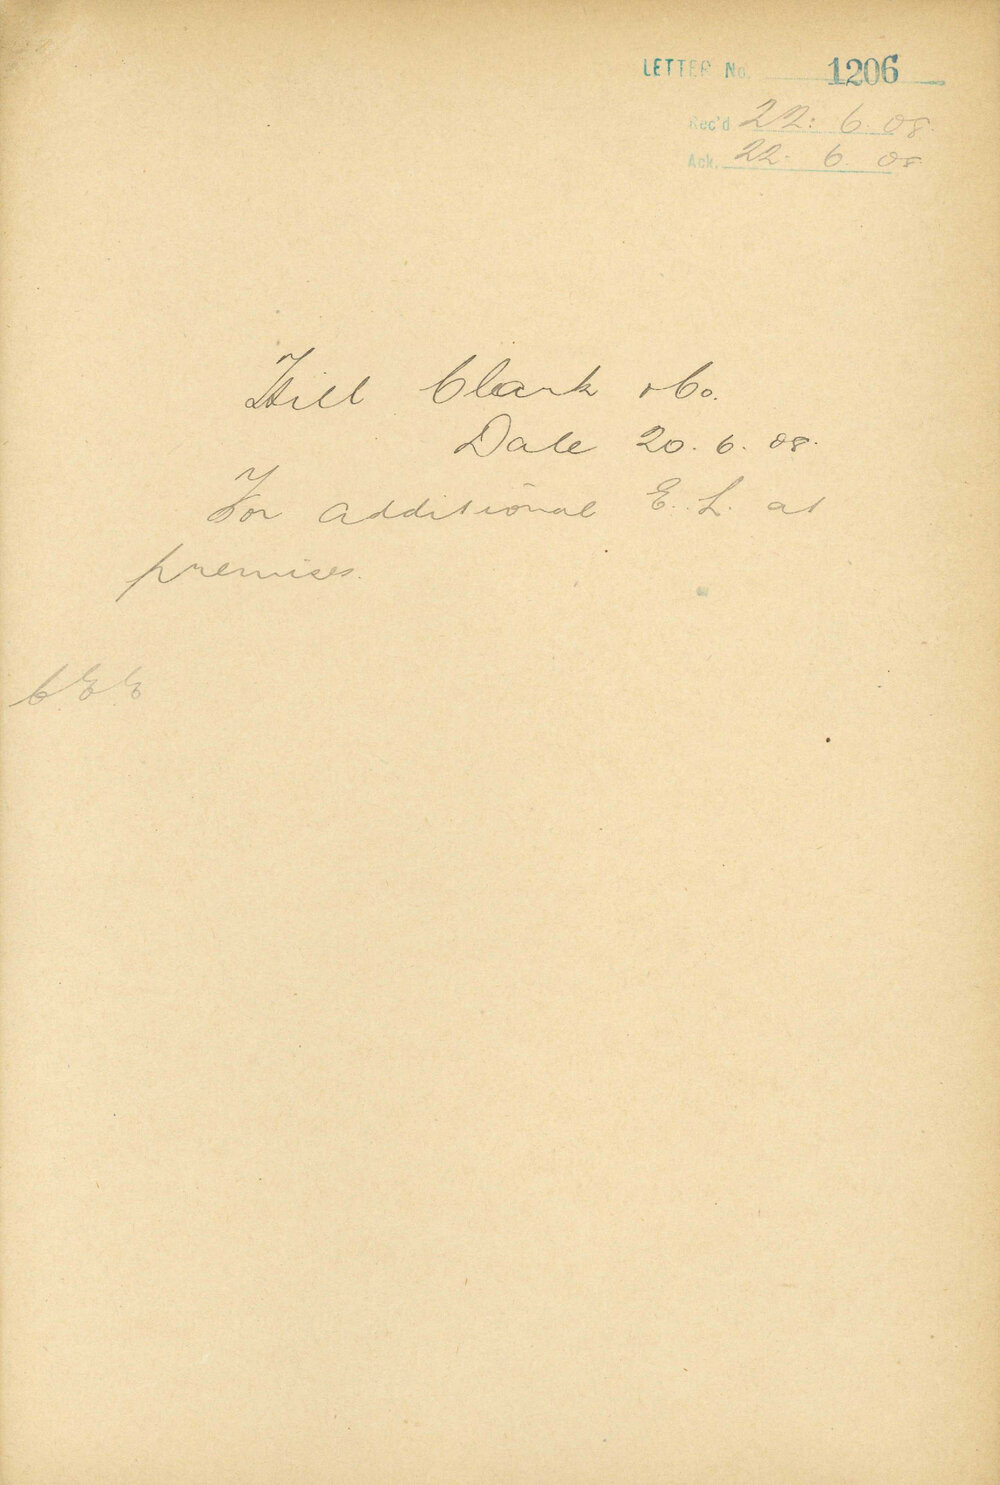 LETTER No. 1206
Rec'd 22. 6. 08.
Ack. 22. 6. 08.
Hill Clark & Co.
Date 20. 6. 08.
For additional E. L. at
premises.
C.E.E